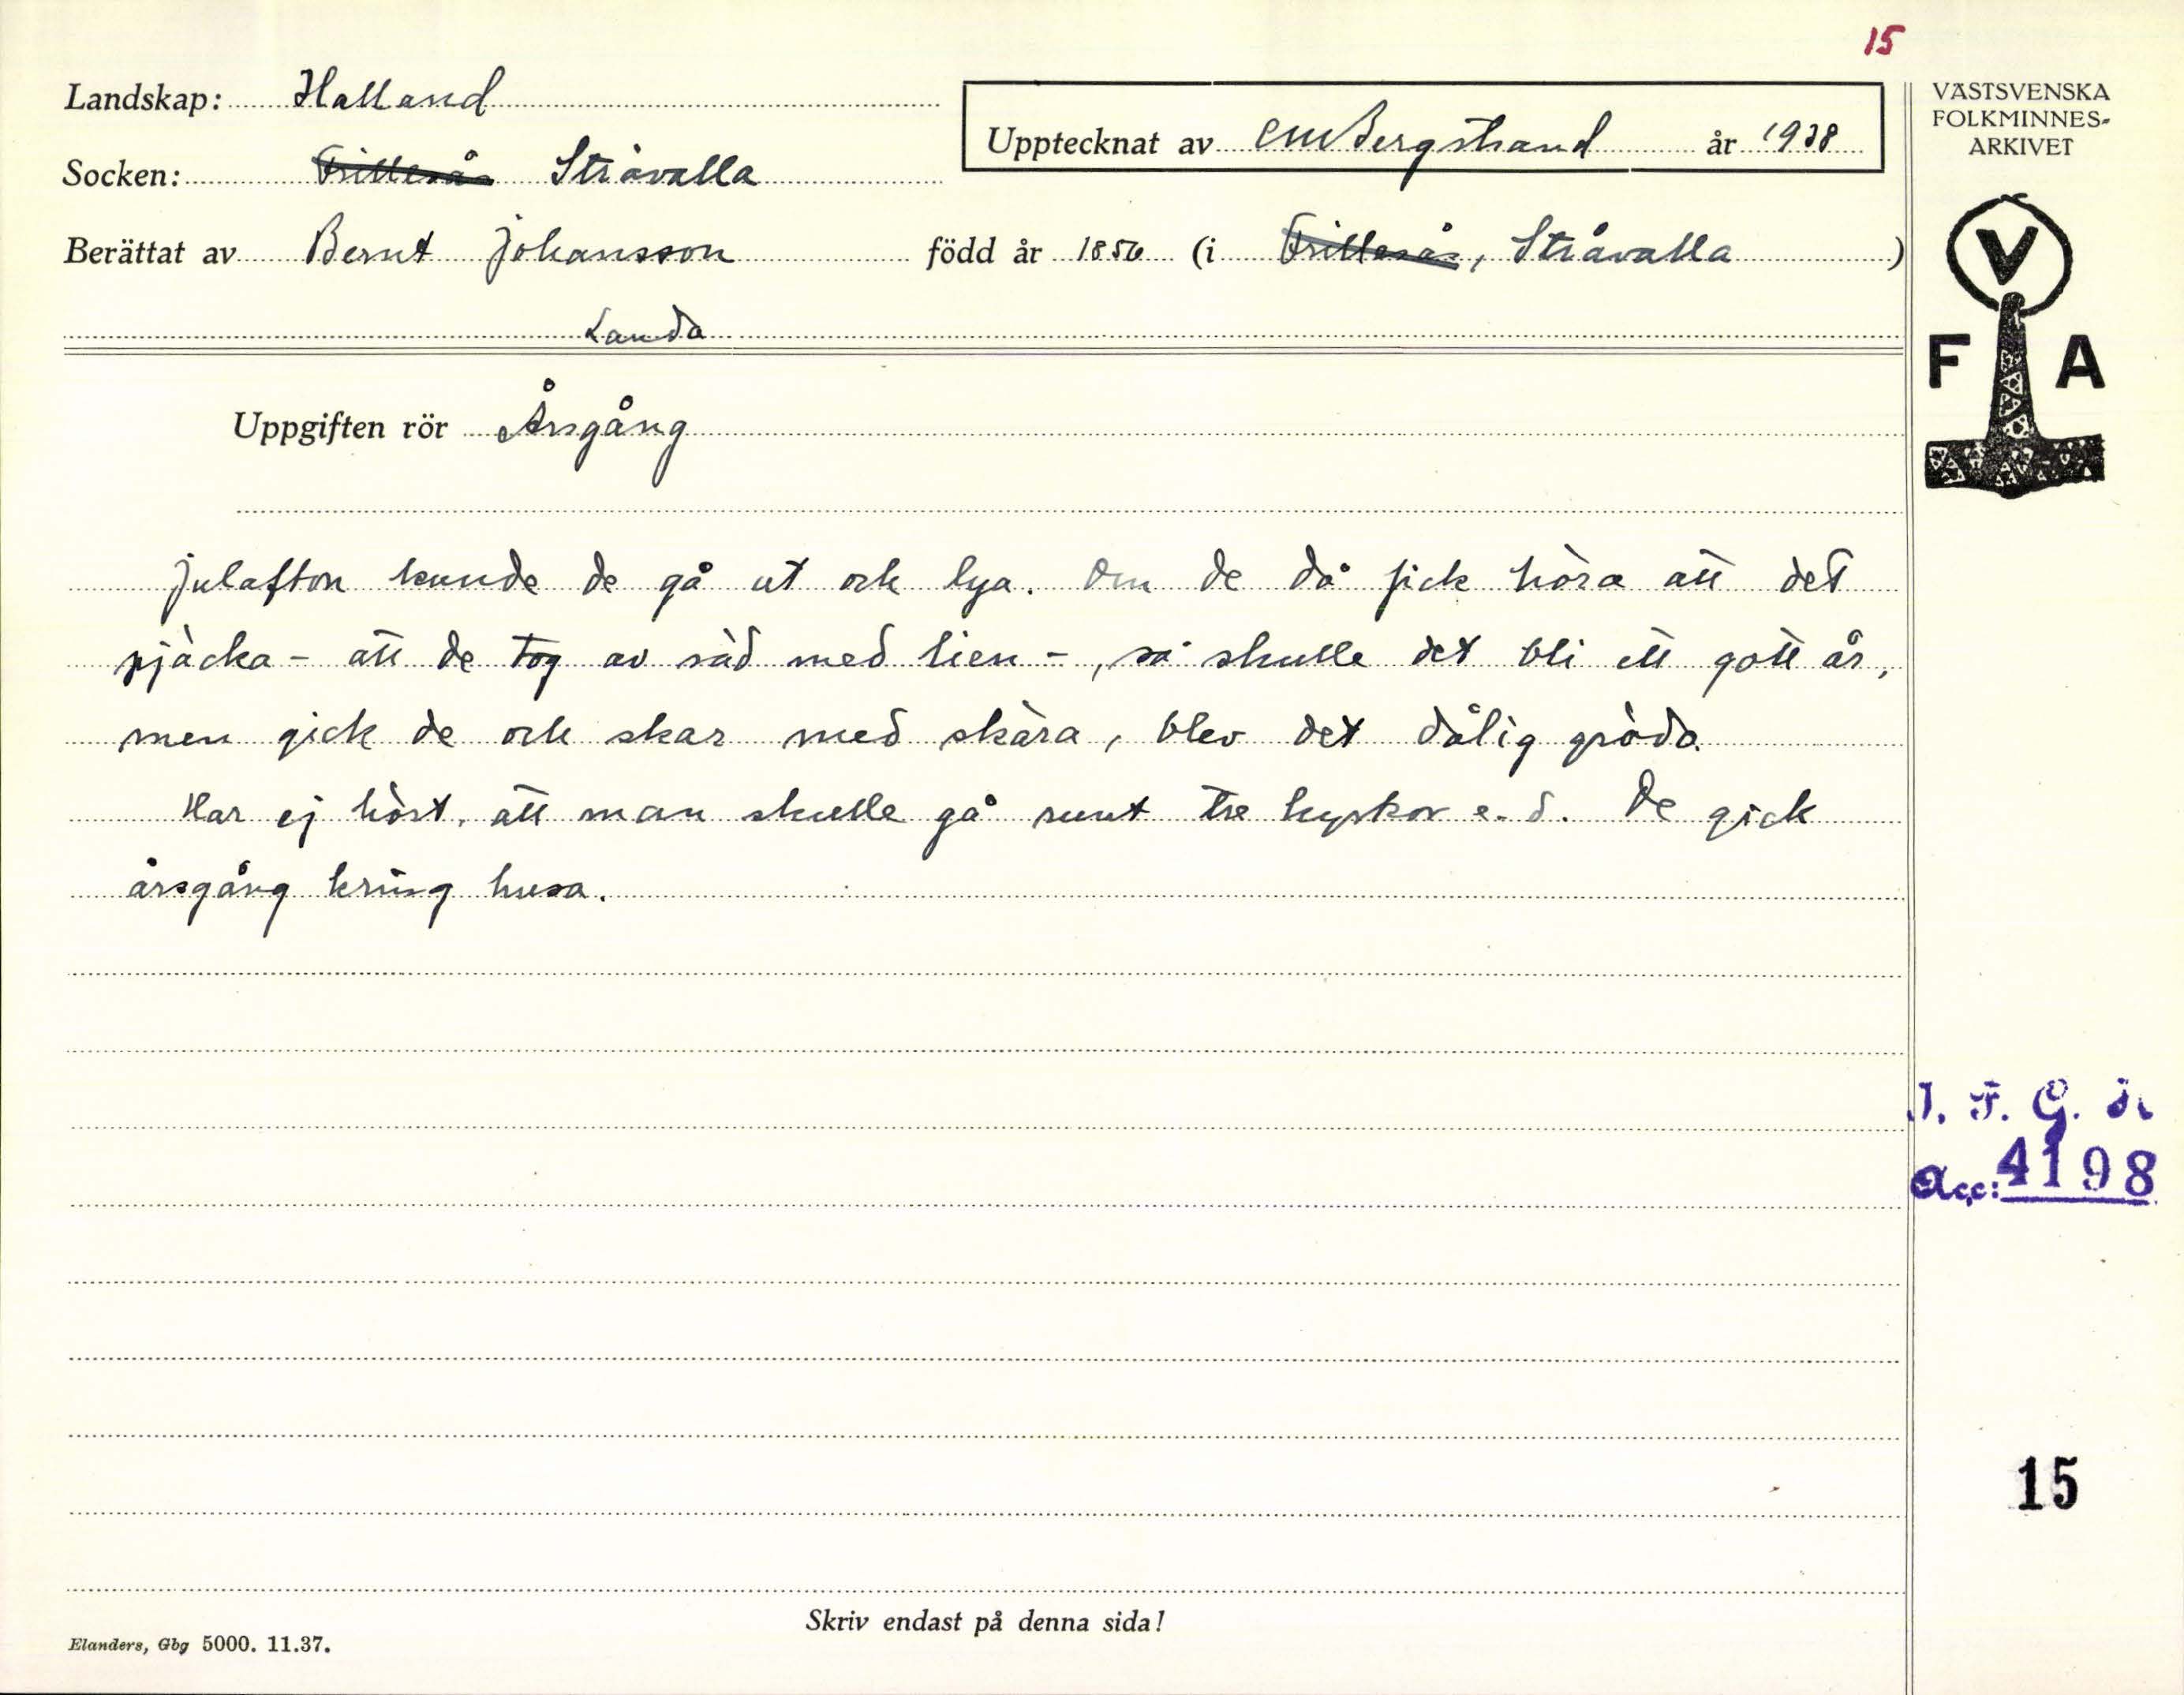 15
Landskap: Halland
Upptecknat av CM Bergstrand år 1938
VÄSTSVENSKA
FOLKMINNES-
ARKIVET
Socken: Frillesås Stråvalla
Berättat av Bernt Johansson född år 1856 (i Frillesås, Stråvalla)
Landa
V
F A
Uppgiften rör Årsgång
Julafton kunde de gå ut och lya. Om de då fick höra att det
pjäcka - att de tog av säd med lien -, så skulle det bli ett gott år,
men gick de och skar med skära, blev det dålig gröda.
Har ej hört, att man skulle gå runt tre kyrkor e. d. De gick
årsgång kring husa.
I. F. G. H.
Acc: 4198
15
Skriv endast på denna sida!
Elanders, Gbg 5000. 11.37.